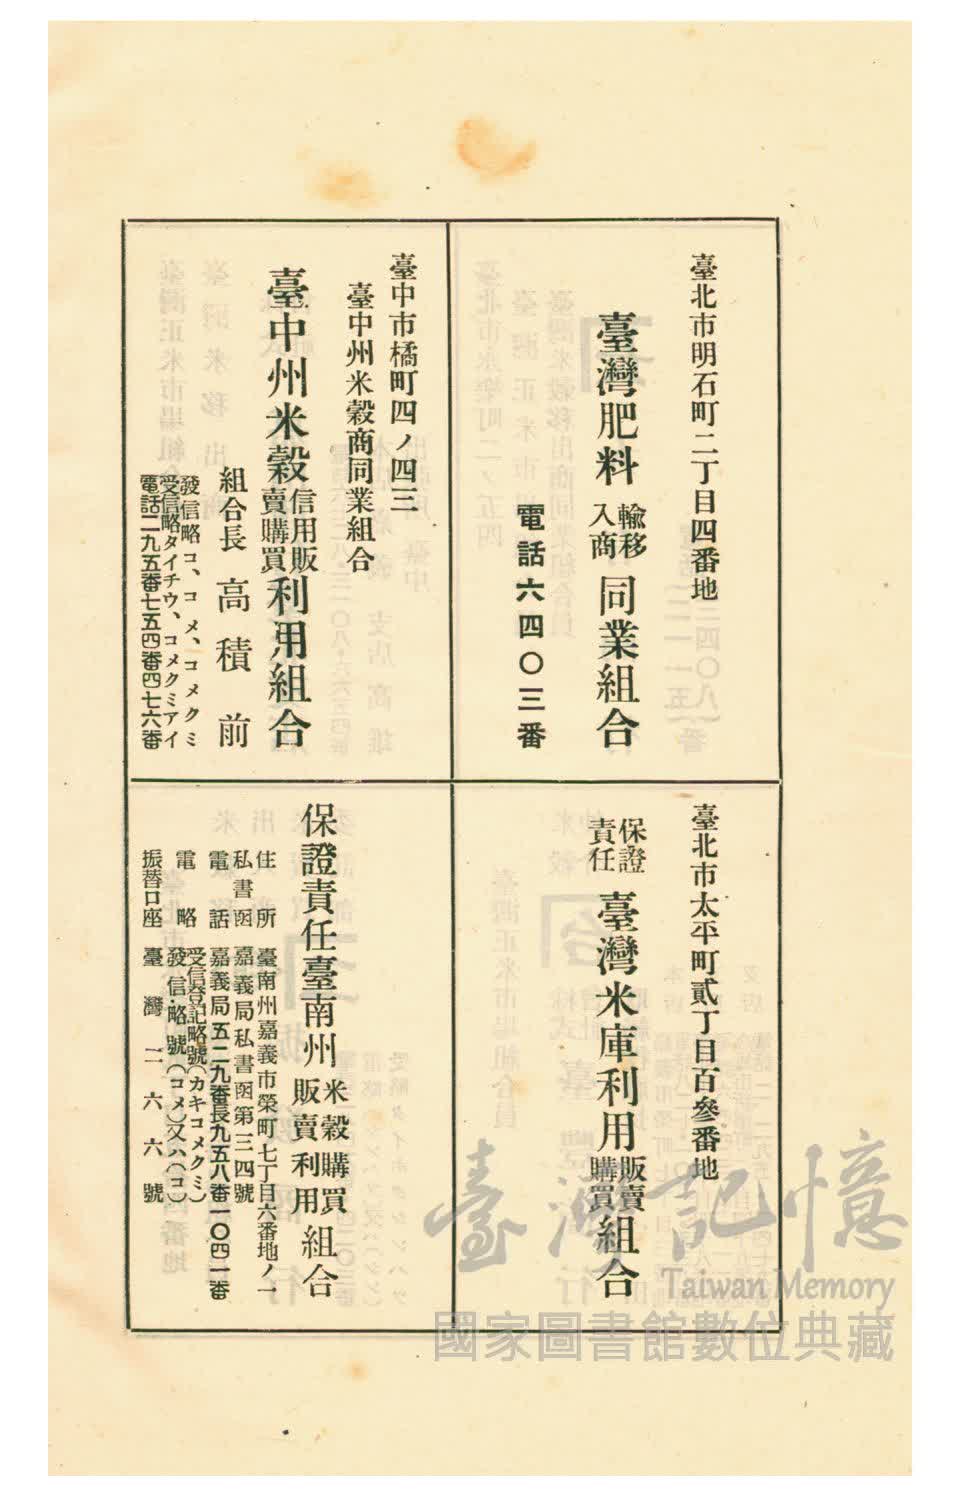 臺北市明石町二丁目四番地
臺灣肥料輸移入商同業組合
電話六四〇三番
臺北市太平町貳丁目百參番地
保證責任臺灣米庫利用販賣購買組合
臺中市橘町四ノ四三
臺中州米穀商同業組合
臺中州米穀信用販賣購買利用組合
組合長 高積前
發信略コ、コメ、コメクミ
受信略タイチウ、コメクミアイ
電話二九五番七五四番四七六番
保證責任臺南州米穀購買販賣利用組合
住所 臺南州嘉義市榮町七丁目六番地ノ一
私書函 嘉義局私書函第三四號
電話 嘉義局五二九番長九五八番一〇四一番
電略 受信登記略號(カキコメクミ)
發信略號(コメ)又ハ(コ)
振替口座 臺灣二六六號
臺灣記憶
Taiwan Memory
國家圖書館數位典藏